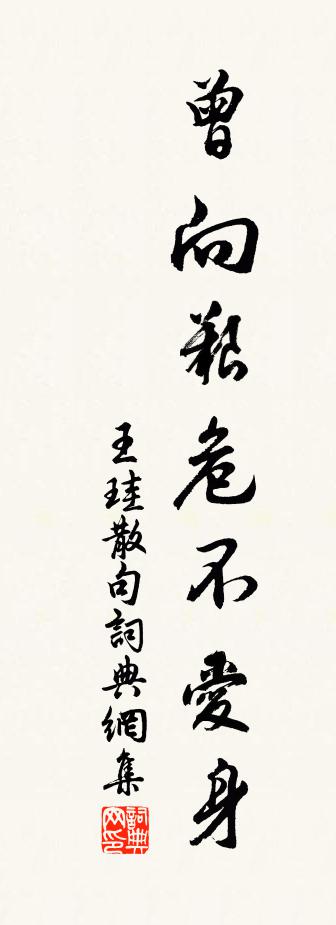 曾向艱危不愛身
王珪散句詞典網集
詞典网印